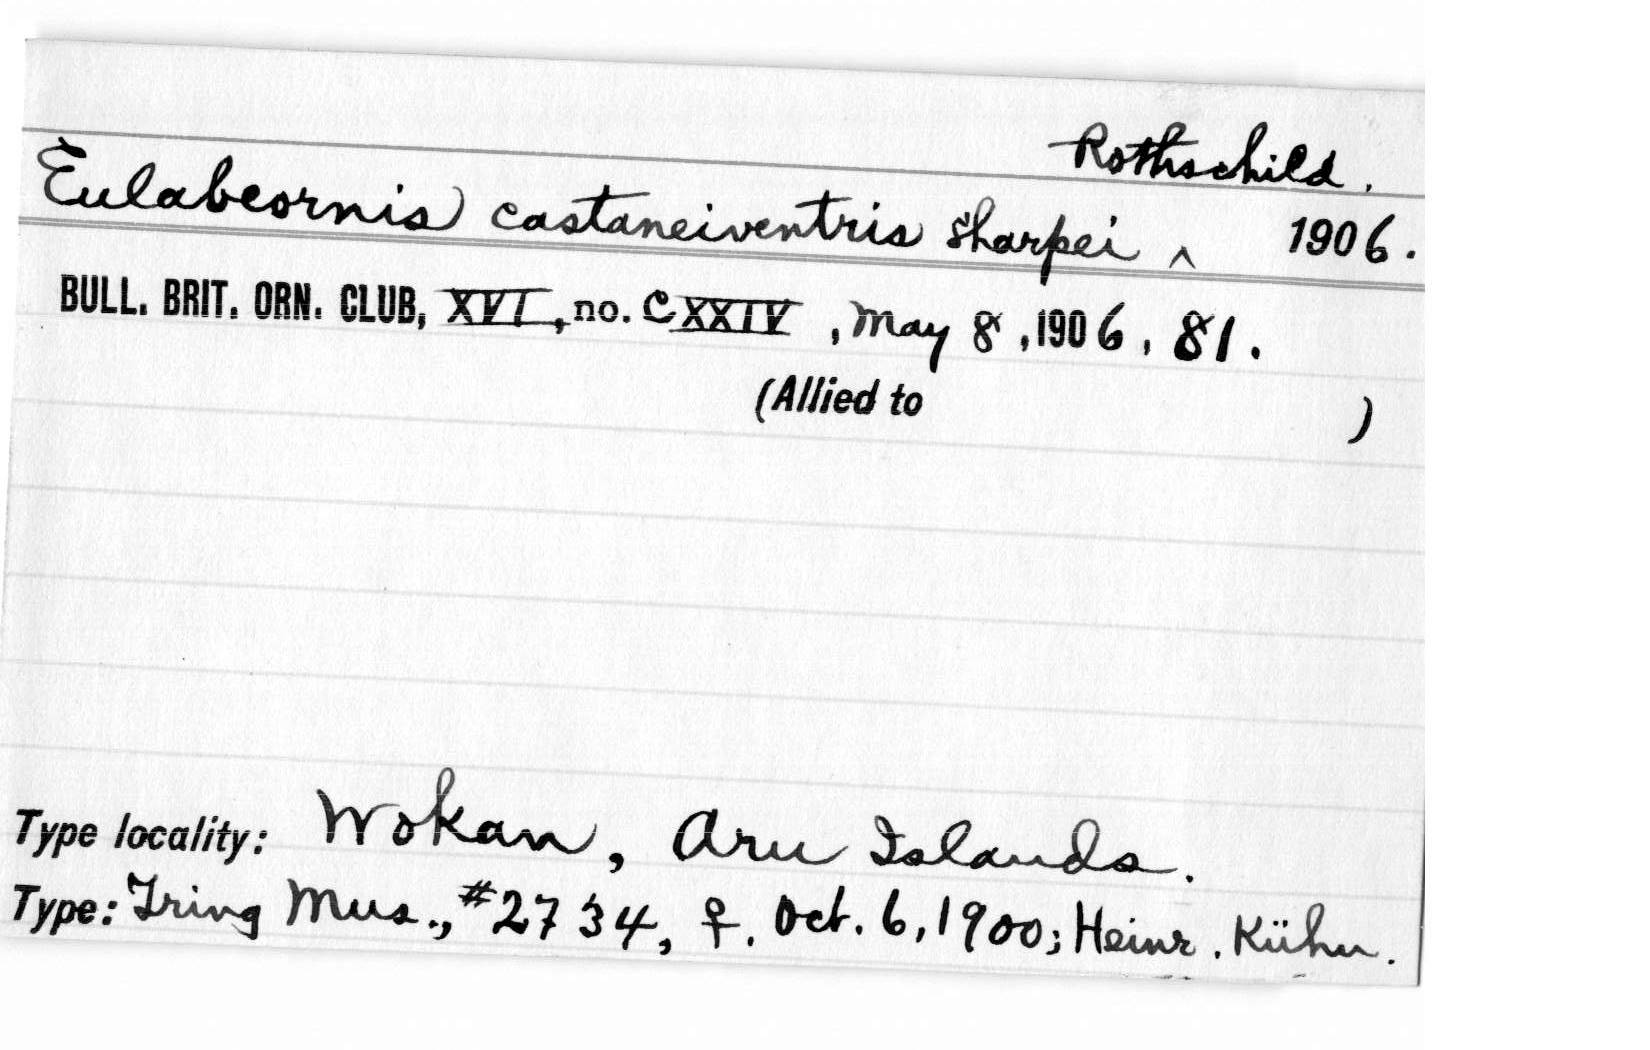 Rothschild.
Eulabeornis castaneiventris sharpei ^ 1906.
BULL. BRIT. ORN. CLUB, XVI, no. CXXIV, May 8, 1906, 81.
(Allied to )
Type locality: Wokan, Aru Islands.
Type: Tring Mus., #2734, ♀. Oct. 6, 1900; Heinr. Kühn.